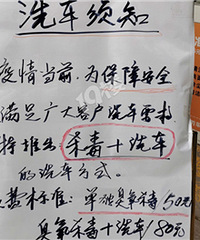 洗车须知
疫情当前,为保障安全
满足广大客户洗车需求
特推出 杀毒+洗车
的洗车方式。
收费标准:单独臭氧杀毒50元
臭氧杀毒+洗车180元